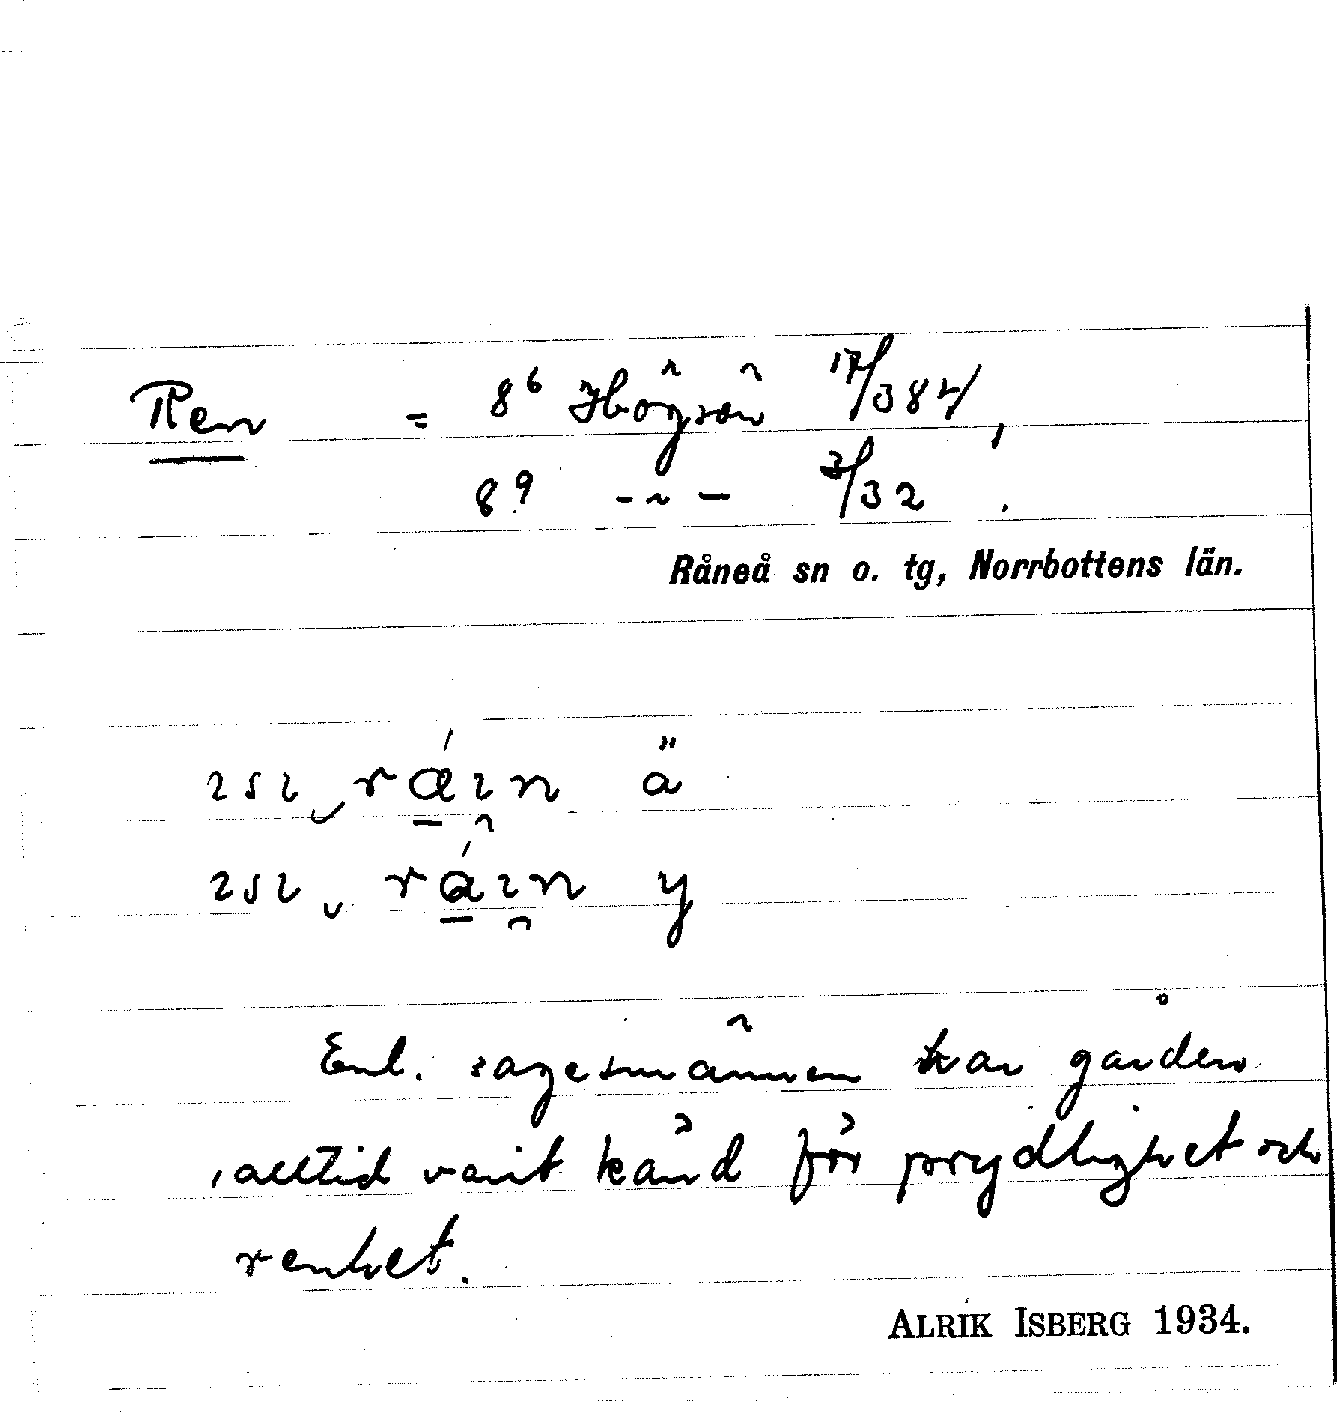 Ren = 8⁶ Högsön 17/384,
8⁹ -"- 3/32.
Råneå sn o. tg, Norrbottens län.
ä
y
Enl. sagesmännen har gården
alltid varit känd för prydlighet och
renhet.
ALRIK ISBERG 1934.